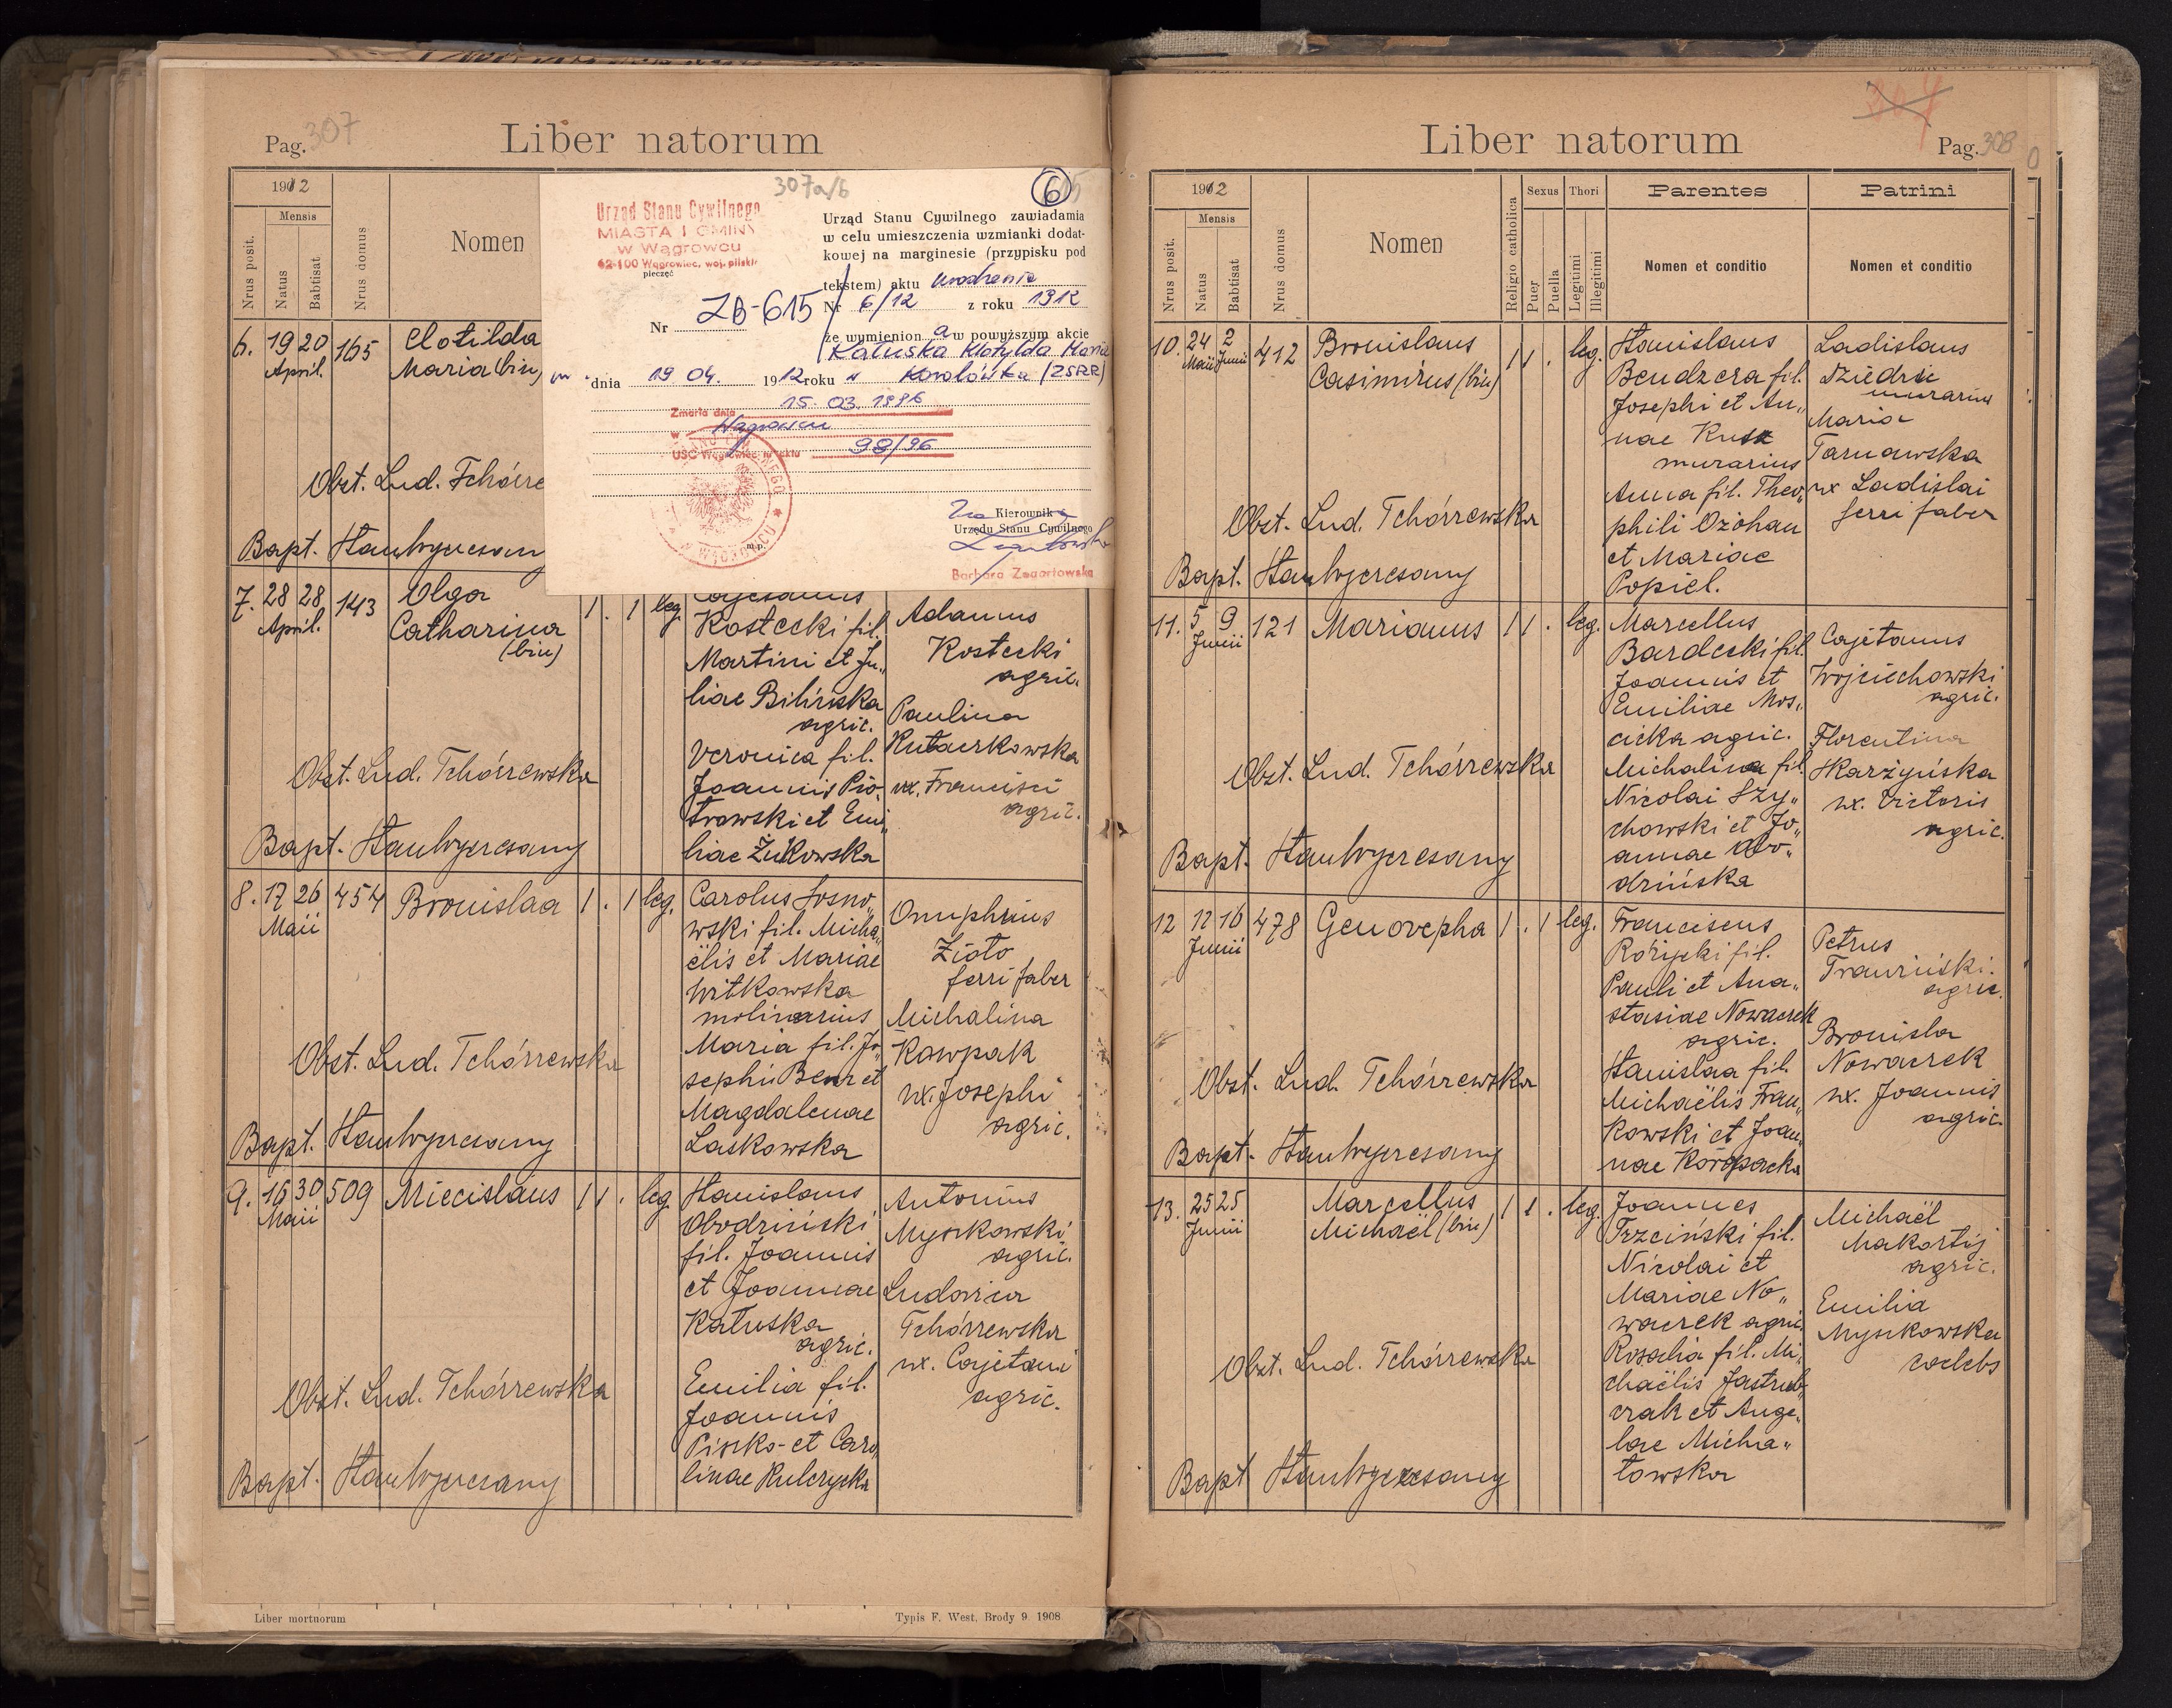 Pag. 307
Liber natorum
1912
Mensis
Nrus posit.
Natus
Babtisat
Nrus domus
Nomen
6. 19 20 165 Clotilda
April. Maria (bin)
Obst. Lud. Tchórze
Bapt.
307a/b
6
Urząd Stanu Cywilnego
MIASTA I GMINY
w Wągrowcu
62-100 Wągrowiec, woj. pilskie
pieczęć
Nr ZB-615
Urząd Stanu Cywilnego zawiadamia
w celu umieszczenia wzmianki dodat-
kowej na marginesie (przypisku pod
tekstem) aktu urodzenia
Nr 6/12 z roku 1912
że wymienion a w powyższym akcie
Kałuska Klotylda Maria
dnia 19 04. 1912 roku w Korolówka (ZSRR)
Zmarła dnia 15. 03. 1996
w Wągrowcu
USC Wągrowiec nr aktu 98/96
Kierownika
Urzędu Stanu Cywilnego
m.p.
Barbara Zagartowska
7. 28 28 143 Olga 1 . 1 leg.
April. Catharina
(bin)
Obst. Lud. Tchórzewska
Bapt.
Cajetanus
Kostecki fil.
Martini et Ju„
liae Bilińska
agric.
Veronica fil.
Joannis Pio„
trowski et Emi„
liae Żukowska
Adamus
Kostecki
agric.
Paulina
ux. Francisci
agric.
8. 17 26 454 Bronislaa 1 . 1 leg.
Maii
Obst. Lud. Tchórzewska
Bapt.
Carolus Sosno„
wski fil. Micha„
ëlis et Mariae
Witkowska
molinarius
Maria fil. Jo„
sephi Benz et
Magdalenae
Laskowska
Onuphrius
Zioło
ferri faber
Michalina
Kawpak
ux. Josephi
agric.
9. 16 30 509 Miecislaus 1 1 . leg.
Maii
Obst. Lud. Tchórzewska
Bapt.
Stanislaus
Obodziński
fil. Joannis
et Joannae
Kałuska
agric.
Emilia fil.
Joannis
Piszko et Caro„
linae Kulczycka
Antonius
Myszkowski
agric.
Ludovica
Tchórzewska
ux. Cajetani
agric.
Liber mortuorum
Typis F. West, Brody 9 1908
Liber natorum
Pag. 308
1912
Mensis
Nrus posit.
Natus
Babtisat
Nrus domus
Nomen
Religio catholica
Sexus
Puer
Puella
Thori
Legitimi
Illegitimi
Parentes
Nomen et conditio
Patrini
Nomen et conditio
10. 24 2 412 Bronislaus 1 1 . leg.
Maii Junii Casimirus (bin)
Obst. Lud. Tchórzewska
Bapt.
Stanislaus
Bendzera fil.
Josephi et An„
nae Kusz
murarius
Anna fil. Theo„
phili Ożohan
et Mariae
Popiel.
Ladislaus
murarius
Maria
Tarnawska
ux Ladislai
ferri faber
11. 5 9 121 Marianus 1 1 . leg.
Junii
Obst. Lud. Tchórzewska
Bapt.
Marcellus
Bardecki fil.
Joannis et
Emiliae Mos„
cicka agric.
Michalina fil.
Nicolai Szy„
chowski et Jo„
annae Obo„
dzińska
Cajetanus
Wojciechowski
agric.
Florentina
Skarżyńska
ux. Victoris
agric.
12 12 16 478 Genovepha 1 . 1 leg.
Junii
Obst. Lud. Tchórzewska
Bapt.
Franciscus
Rożycki fil.
Pauli et Ana„
stasiae Nowaczek
agric.
Stanislaa fil.
Michaëlis Fran„
kowski et Joan„
nae Koropacka
Petrus
agric.
Bronisla
Nowaczek
ux. Joannis
agric.
13. 25 25 Marcellus 1 1 . leg.
Junii Michaël (bin)
Obst. Lud. Tchórzewska
Bapt
Joannes
Trzciński fil.
Nicolai et
Mariae No„
waczek agric.
Rosalia fil. Mi„
chaëlis Jastrub„
czak et Ange„
lae Micha„
łowska
Michaël
Makortij
agric.
Emilia
Myszkowska
coelebs